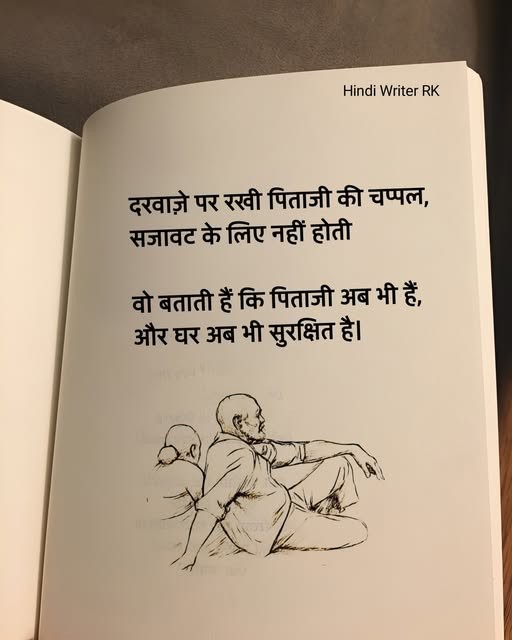 Hindi Writer RK
दरवाज़े पर रखी पिताजी की चप्पल,
सजावट के लिए नहीं होती
वो बताती हैं कि पिताजी अब भी हैं,
और घर अब भी सुरक्षित है|